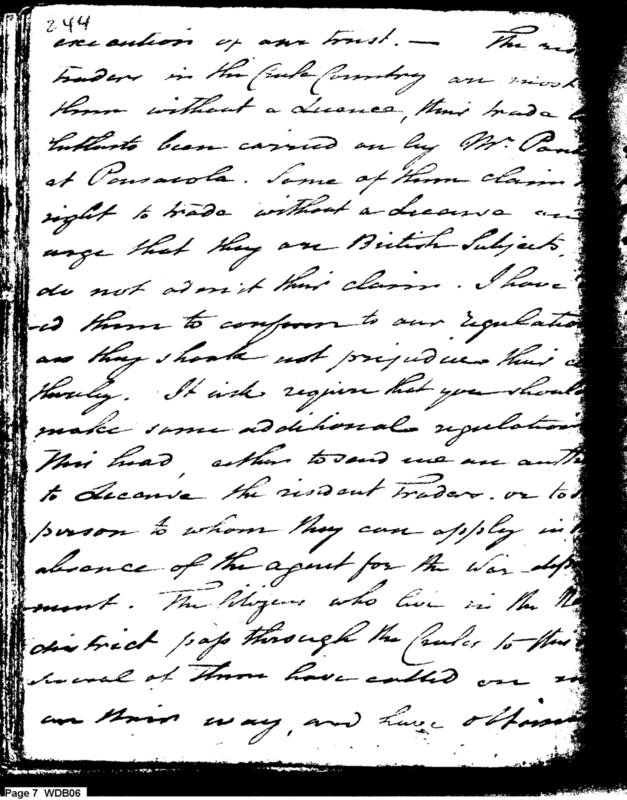 244
execution of our trust. — The res
traders in the Creek Country are most
them without a Licence, their trade
hitherto been carried on by Mr. Pan
at Pensacola. Some of them claim
right to trade without a Licence an
urge that they are British Subjects,
do not admit their claim. I have
ed them to conform to our regulation
as they should not prejudice their c
thereby. It will require that you should
make some additional regulations
this head, either to send me an autho
to Licence the resident Traders. or to
person to whom they can apply in
absence of the agent for the War depa
ment. The Citizens who live in the
district pass through the Creeks to this
several of them have called on m
on their way, and have obtain
Page 7 WDB06